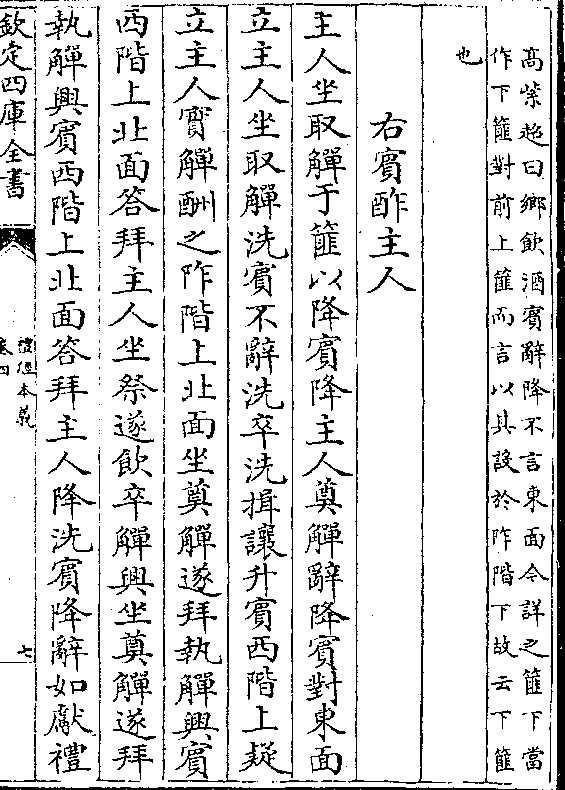 高紫超曰鄉飲酒賓辭降不言東面今詳之篚下當
作下篚對前上篚而言以其設於阼階下故云下篚
也
右賓酢主人
主人坐取觶于篚以降賓降主人奠觶辭降賓對東面
立主人坐取觶洗賓不辭洗卒洗揖讓升賓西階上疑
立主人實觶酬之阼階上北面坐奠觶遂拜執觶興賓
西階上北面答拜主人坐祭遂飲卒觶興坐奠觶遂拜
執觶興賓西階上北面答拜主人降洗賓降辭如獻禮
欽定四庫全書
禮經本義
卷四
七